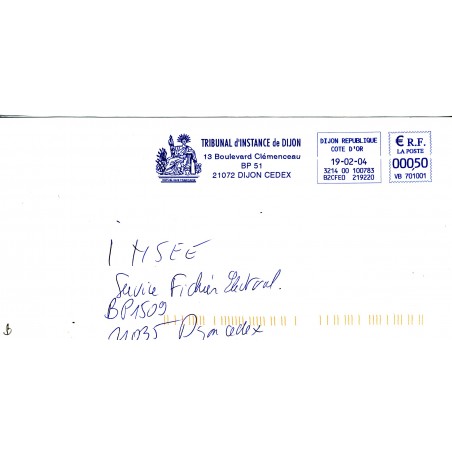 TRIBUNAL d'INSTANCE de DIJON
13 Boulevard Clémenceau
BP 51
21072 DIJON CEDEX
DIJON REPUBLIQUE
COTE D'OR
19-02-04
3214 00 100783
B2CFE0 219220
€ R.F.
LA POSTE
00050
VB 701001
INSEE
Service Fichier Electoral.
BP1509
21035 Dijon cedex